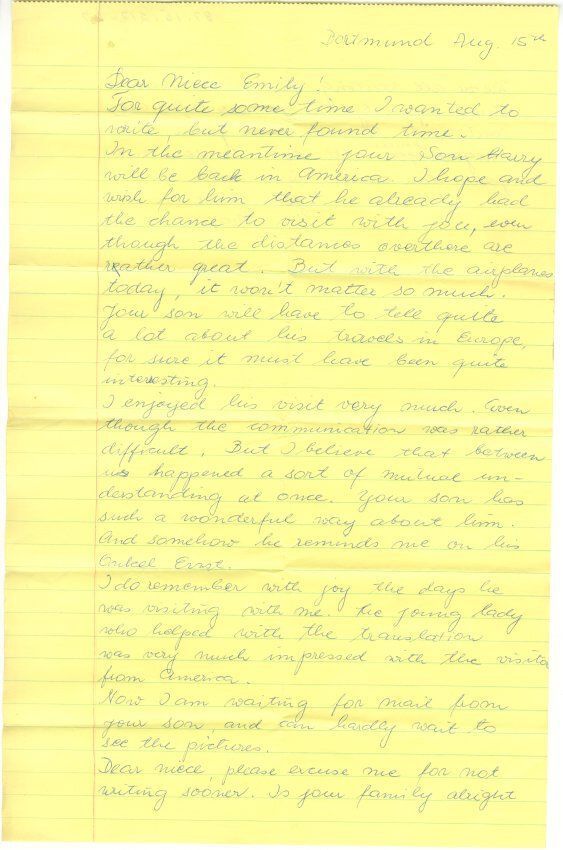 Dortmund Aug. 15th
Dear Niece Emily!
For quite some time I wanted to
write, but never found time.
In the meantime your Son Harry
will be back in America. I hope and
wish for him that he already had
the chance to visit with you, even
though the distances overthere are
rather great. But with the airplanes
today, it won't matter so much.
Your son will have to tell quite
a lot about his travels in Europe,
for sure it must have been quite
interesting.
I enjoyed his visit very much. Even
though the communication was rather
difficult. But I believe that between
us happened a sort of mutual un-
derstanding at once. Your son has
such a wonderful way about him.
And somehow he reminds me on his
Onkel Ernst.
I do remember with joy the days he
was visiting with me. The young lady
who helped with the translation
was very much impressed with the visitor
from America.
Now I am waiting for mail from
your son, and can hardly wait to
see the pictures.
Dear niece, please excuse me for not
writing sooner. Is your family alright